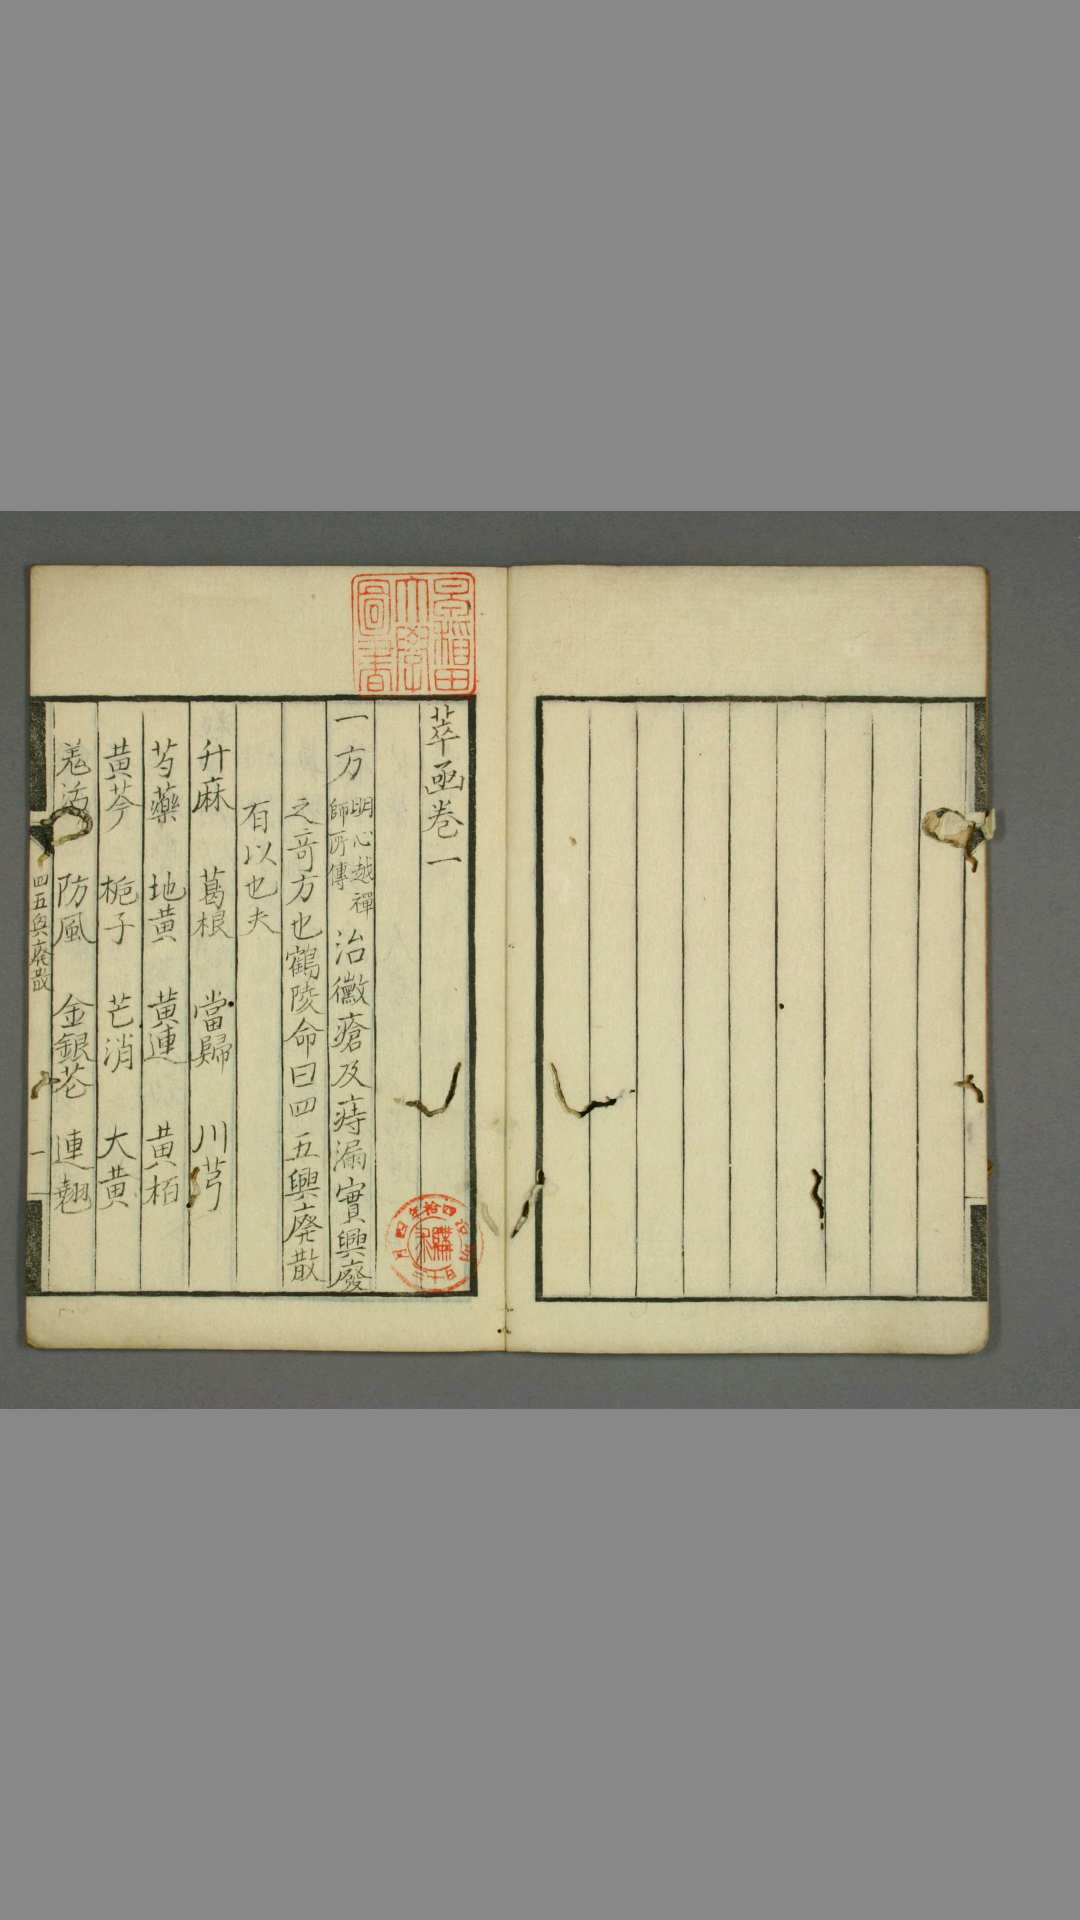 萃函卷一
一方 明心越禪
師所傳 治黴瘡及痔漏實興廢
之竒方也鶴陵命曰四五興廃散
有以也夫
升麻 葛根 當歸 川芎
芍藥 地黄 黄連 黄栢
黄芩 梔子 芒消 大黄
羗活 防風 金銀花 連翹
四五興廃散 一
早稲田
大學
圖書